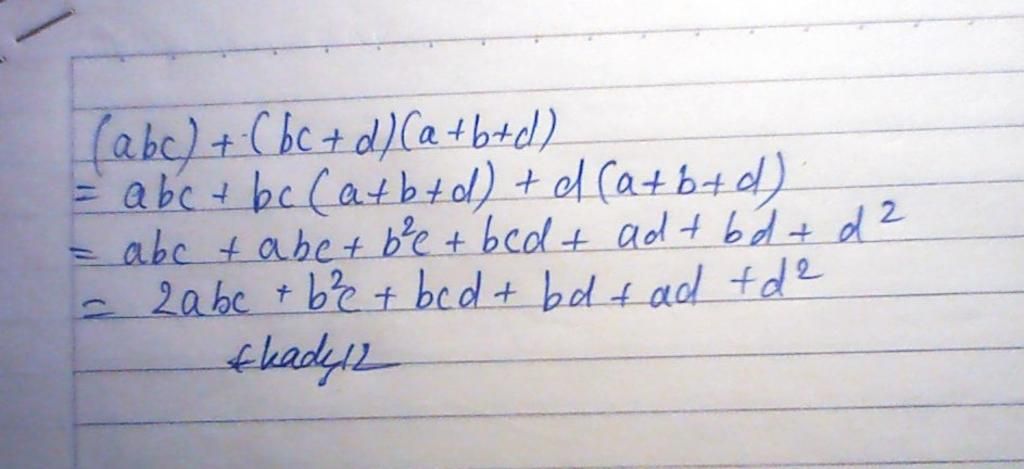 (abc) + (bc + d)(a + b + d)
= abc + bc (a + b + d) + d (a + b + d)
= abc + abc + b²c + bcd + ad + bd + d²
= 2abc + b²c + bcd + bd + ad + d²